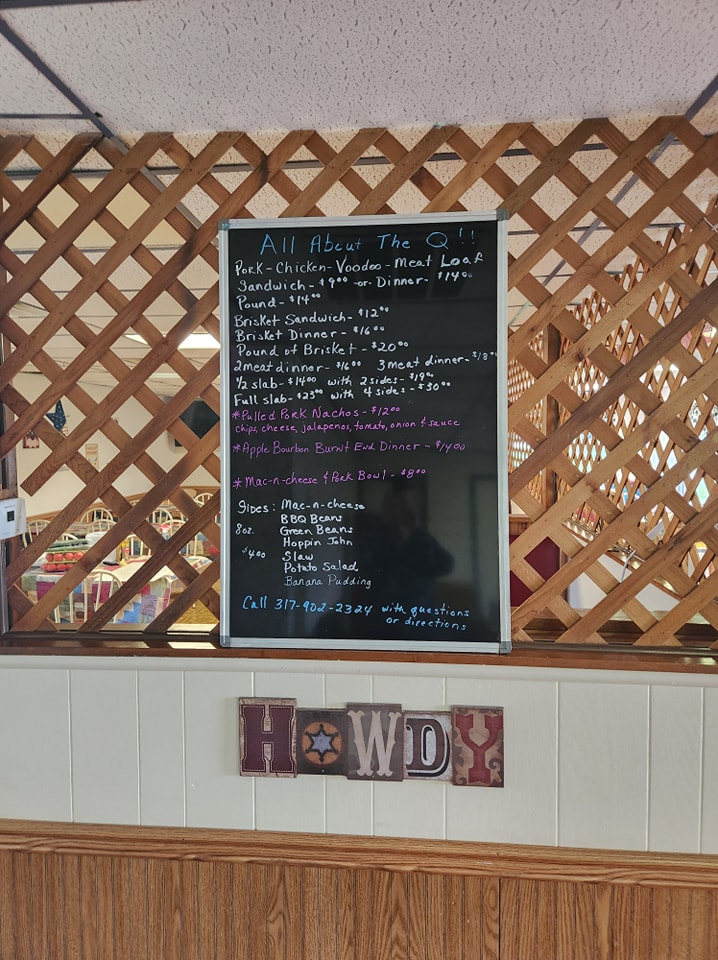 All About The Q!!
Pork-Chicken-Voodoo-Meat Loaf
Sandwich-$9.00 or Dinner-$14.00
Pound-$14.00
Brisket Sandwich-$12.00
Brisket Dinner-$16.00
Pound of Brisket-$20.00
2 meat dinner-$16.00 3 meat dinner-$18.00
1/2 slab-$14.00 with 2 sides-$19.00
Full slab-$25.00 with 4 sides-$30.00
*Pulled Pork Nachos-$12.00
chips, cheese, jalapenos, tomato, onion & sauce
*Apple Bourbon Burnt End Dinner-$14.00
*Mac-n-cheese & Pork Bowl-$8.00
Sides: Mac-n-cheese
BBQ Beans
8oz. Green Beans
Hoppin John
$4.00 Slaw
Potato Salad
Banana Pudding
Call 317-902-2324 with questions
or directions
HOWDY